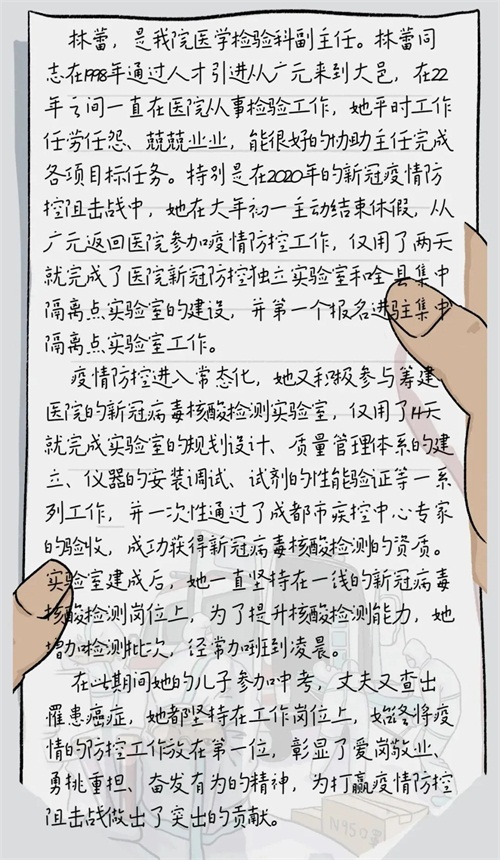 林蕾，是我院医学检验科副主任。林蕾同
志在1998年通过人才引进从广元来到大邑，在22
年之间一直在医院从事检验工作，她平时工作
任劳任怨、兢兢业业，能很好的协助主任完成
各项目标任务。特别是在2020年的新冠疫情防
控阻击战中，她在大年初一主动结束休假，从
广元返回医院参加疫情防控工作，仅用了两天
就完成了医院新冠防控独立实验室和全县集中
隔离点实验室的建设，并第一个报名进驻集中
隔离点实验室工作。
疫情防控进入常态化，她又积极参与筹建
医院的新冠病毒核酸检测实验室，仅用了14天
就完成实验室的规划设计、质量管理体系的建
立、仪器的安装调试、试剂的性能验证等一系
列工作，并一次性通过了成都市疾控中心专家
的验收，成功获得新冠病毒核酸检测的资质。
实验室建成后，她一直坚持在一线的新冠病毒
核酸检测岗位上，为了提升核酸检测能力，她
增加检测批次，经常加班到凌晨。
在此期间她的儿子参加中考，丈夫又查出
罹患癌症，她都坚持在工作岗位上，始终将疫
情的防控工作放在第一位，彰显了爱岗敬业、
勇挑重担、奋发有为的精神，为打赢疫情防控
阻击战做出了突出的贡献。
N95